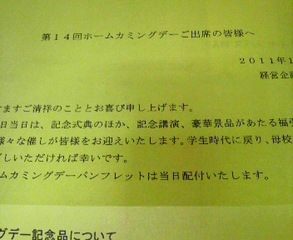 第１４回ホームカミングデーご出席の皆様へ
２０１１年１
経営企
ますますご清祥のこととお喜び申し上げます。
日当日は、記念式典のほか、記念講演、豪華景品があたる福引
々な催しが皆様をお迎えいたします。学生時代に戻り、母校
しいただければ幸いです。
ムカミングデーパンフレットは当日配付いたします。
グデー記念品について